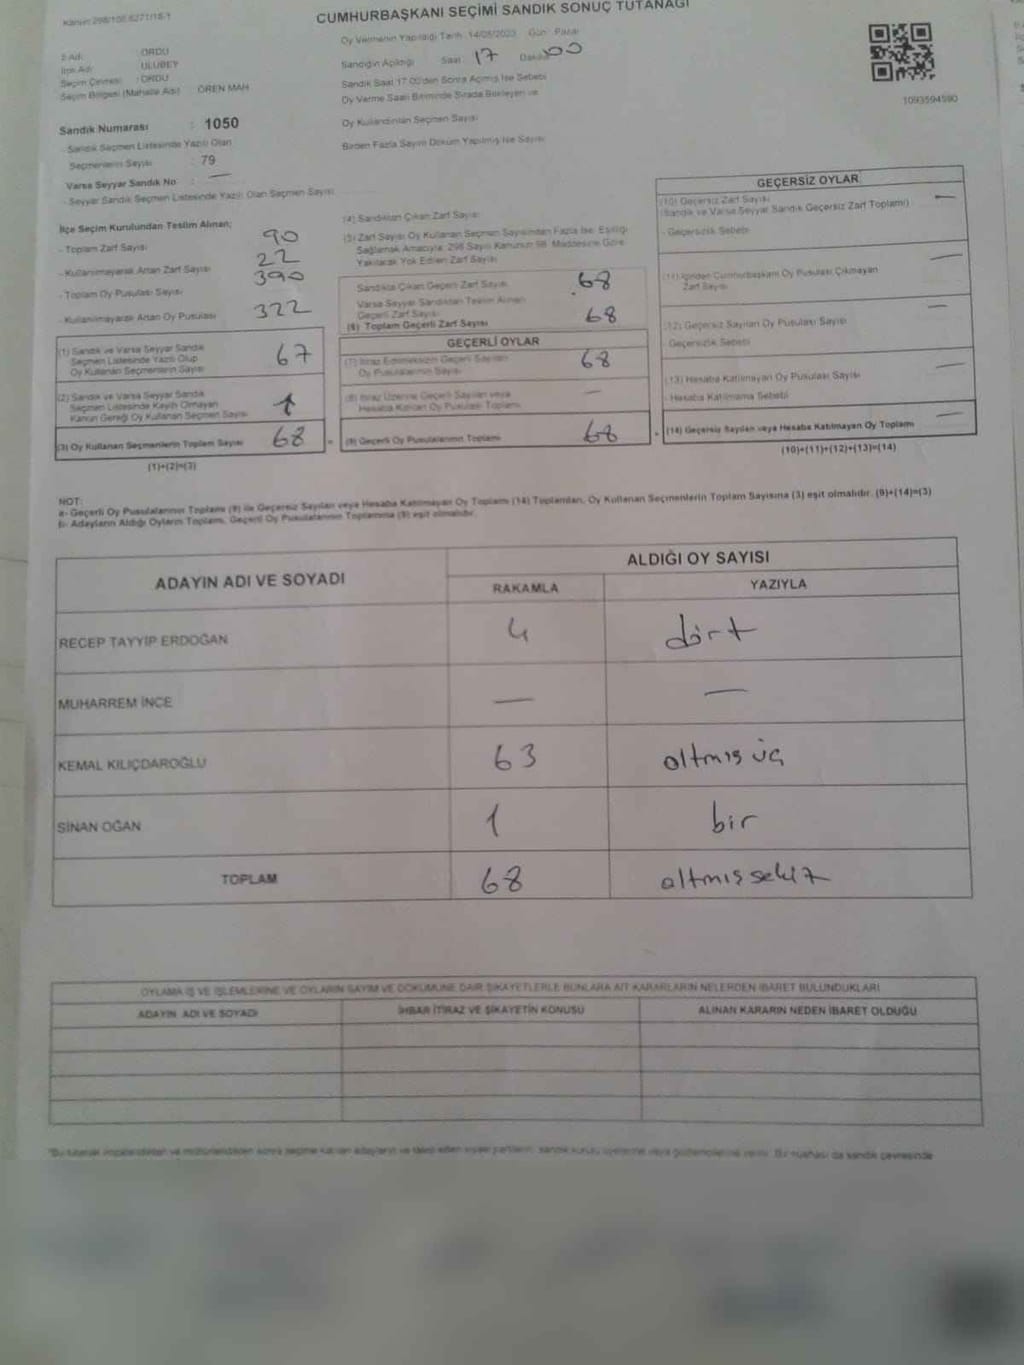 CUMHURBAŞKANI SEÇİMİ SANDIK SONUÇ TUTANAĞI
Oy Vermenin Yapıldığı Tarih 14/05/2023 Gün: Pazar
İl Adı : ORDU
İlçe Adı : ULUBEY
Seçim Çevresi : ORDU
Seçim Bölgesi (Mahalle Adı) ÖREN MAH
Sandığın Açıldığı Saat 17 Dakika 00
Sandık Saat 17:00'den Sonra Açılmış İse Sebebi
Oy Verme Saati Bitiminde Sırada Bekleyen ve
Oy Kullandırılan Seçmen Sayısı
Birden Fazla Sayım Döküm Yapılmış İse Sayısı
1093594590
Sandık Numarası : 1050
- Sandık Seçmen Listesinde Yazılı Olan
Seçmenlerin Sayısı : 79
Varsa Seyyar Sandık No : —
- Seyyar Sandık Seçmen Listesinde Yazılı Olan Seçmen Sayısı
İlçe Seçim Kurulundan Teslim Alınan;
- Toplam Zarf Sayısı 90
- Kullanılmayarak Artan Zarf Sayısı 22
- Toplam Oy Pusulası Sayısı 390
- Kullanılmayarak Artan Oy Pusulası 322
(1) Sandık ve Varsa Seyyar Sandık
Seçmen Listesinde Yazılı Olup
Oy Kullanan Seçmenlerin Sayısı 67
(2) Sandık ve Varsa Seyyar Sandık
Seçmen Listesinde Kayıtlı Olmayan
Kanun Gereği Oy Kullanan Seçmen Sayısı 1
(3) Oy Kullanan Seçmenlerin Toplam Sayısı 68
(1)+(2)=(3)
(4) Sandıktan Çıkan Zarf Sayısı
(5) Zarf Sayısı Oy Kullanan Seçmen Sayısından Fazla İse, Eşitliği
Sağlamak Amacıyla, 298 Sayılı Kanunun 98. Maddesine Göre
Yakılarak Yok Edilen Zarf Sayısı
Sandıkta Çıkan Geçerli Zarf Sayısı 68
Varsa Seyyar Sandıktan Teslim Alınan
Geçerli Zarf Sayısı
(6) Toplam Geçerli Zarf Sayısı 68
GEÇERLİ OYLAR
(7) İtiraz Edilmeksizin Geçerli Sayılan
Oy Pusulalarının Sayısı 68
(8) İtiraz Üzerine Geçerli Sayılan veya
Hesaba Katılan Oy Pusulası Toplamı —
(9) Geçerli Oy Pusulalarının Toplamı 68
GEÇERSİZ OYLAR
(10) Geçersiz Zarf Sayısı —
(Sandık ve Varsa Seyyar Sandık Geçersiz Zarf Toplamı)
- Geçersizlik Sebebi
(11) İçinden Cumhurbaşkanı Oy Pusulası Çıkmayan —
Zarf Sayısı
(12) Geçersiz Sayılan Oy Pusulası Sayısı —
Geçersizlik Sebebi
(13) Hesaba Katılmayan Oy Pusulası Sayısı —
- Hesaba Katılmama Sebebi
(14) Geçersiz Sayılan veya Hesaba Katılmayan Oy Toplamı —
(10)+(11)+(12)+(13)=(14)
NOT:
a- Geçerli Oy Pusulalarının Toplamı (9) ile Geçersiz Sayılan veya Hesaba Katılmayan Oy Toplamı (14) Toplamları, Oy Kullanan Seçmenlerin Toplam Sayısına (3) eşit olmalıdır. (9)+(14)=(3)
b- Adayların Aldığı Oyların Toplamı, Geçerli Oy Pusulalarının Toplamına (9) eşit olmalıdır.
ADAYIN ADI VE SOYADI
ALDIĞI OY SAYISI
RAKAMLA YAZIYLA
RECEP TAYYİP ERDOĞAN 4 dört
MUHARREM İNCE — —
KEMAL KILIÇDAROĞLU 63 altmış üç
SİNAN OĞAN 1 bir
TOPLAM 68 altmış sekiz
OYLAMA İŞ VE İŞLEMLERİNE VE OYLARIN SAYIM VE DÖKÜMÜNE DAİR ŞİKAYETLERLE BUNLARA AİT KARARLARIN NELERDEN İBARET BULUNDUKLARI
ADAYIN ADI VE SOYADI İHBAR İTİRAZ VE ŞİKAYETİN KONUSU ALINAN KARARIN NEDEN İBARET OLDUĞU